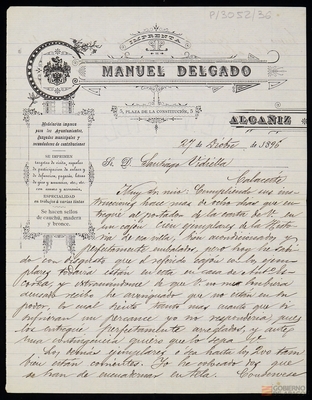 P/3052/36
IMPRENTA
MANUEL DELGADO
5, PLAZA DE LA CONSTITUCIÓN, 5
ALCAÑIZ
Modelación impresa
para los Ayuntamientos,
Juzgados municipales y
recaudadores de contribuciones
SE IMPRIMEN
tarjetas de visita, esquelas
de participación de enlace y
de defunción, papeles, libros
de giro y memorias, etc, etc.
ESPECIALIDAD
en trabajos á varias tintas
Se hacen sellos
de cauchú, madera
y bronce.
27 de Dicbre de 1896
Sr. D. Santiago Vidiella
Calaceite
Muy Sr. mio: Cumpliendo sus ins-
trucciones hace mas de ocho dias que en-
tregué al portador de la carta de V. en
un cajón cien ejemplares de la Histo-
ria de esa villa, bien acondicionados y
perfectamente embalados, pero hoy he sabi-
do con disgusto que el referido cajón con los ejem-
plares todavia están en esta en casa de
y extrañandome de que V. no me hubiera
acusado recibo he averiguado que no están en su
poder, lo cual siento tanto mas cuanto que si
sufrieran un percance yo no respondería, pues
los entregué perfectamente arreglados, y ante
una contingencia quiero que lo sepa V.
Los demás ejemplares o sea hasta los 200 tam-
bien están corrientes. Yo he colocado dos que
se han de encuadernar en tela. Conserveme
GOBIERNO
DE ARAGON